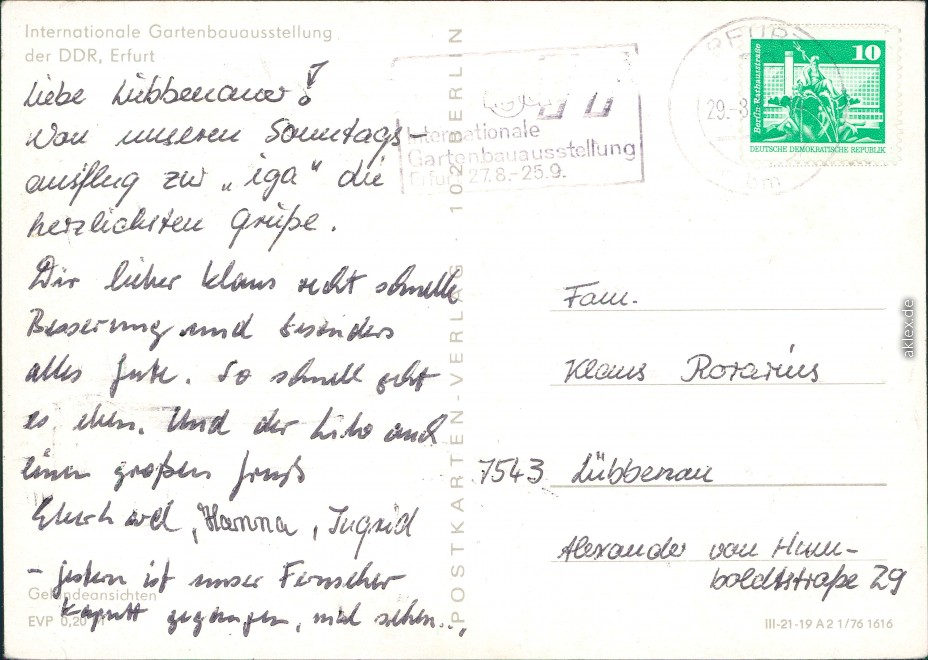 Internationale Gartenbauausstellung
der DDR, Erfurt
Liebe Lübbenauer!
Von unseren Sonntags-
ausflug zur „iga" die
herzlichsten Grüße.
Dir lieber Klaus recht schnelle
Besserung und besonders
alles Gute. So schnell geht
es eben. Und der Liebe auch
einen großen Gruß
Eberhard, Hanna, Ingrid
- gestern ist unser Fernseher
kaputt gegangen, mal sehen...
Geländeansichten
EVP 0,20
POSTKARTEN-VERLAG 102 BERLIN
Internationale
Gartenbauausstellung
Erfurt 27.8.-25.9.
ERFURT
29.-8
bm
10
Berlin-Rathausstraße
DEUTSCHE DEMOKRATISCHE REPUBLIK
Fam.
Klaus Rorarius
7543 Lübbenau
Alexander von Hum-
boldtstraße 29
III-21-19 A 2 1/76 1616
aklex.de